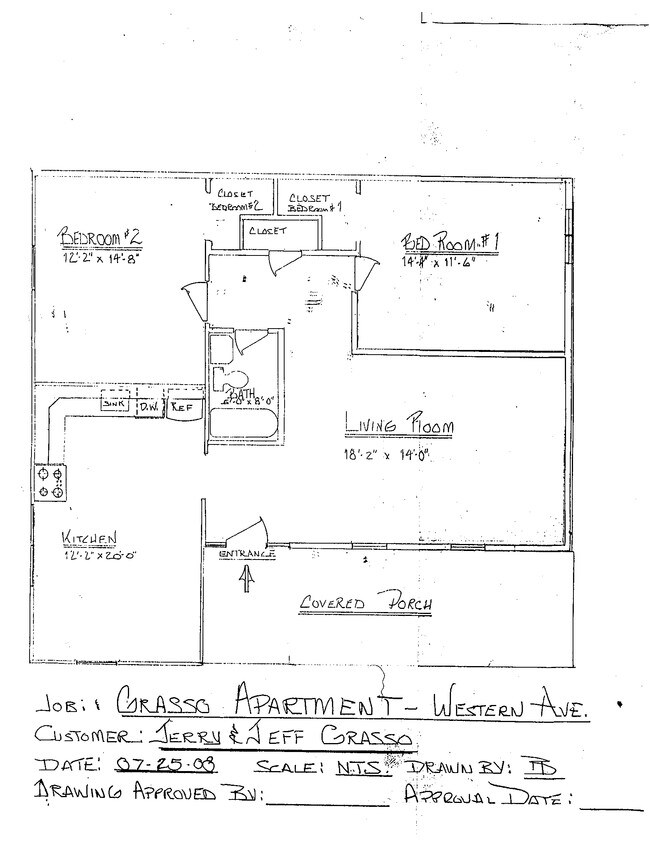 CLOSET
BEDROOM #2
CLOSET
BEDROOM #1
CLOSET
BEDROOM #2
12'-2" x 14'-8"
BED ROOM #1
14'-4" x 11'-6"
SINK
D.W.
REF
BATH
LIVING ROOM
18'-2" x 14'-0"
KITCHEN
12'-2" x 20'-0"
ENTRANCE
COVERED PORCH
JOB: GRASSO APARTMENT - WESTERN AVE.
CUSTOMER: JERRY & JEFF GRASSO
DATE: 07-25-08 SCALE: N.T.S. DRAWN BY:
DRAWING APPROVED BY: APPROVAL DATE: